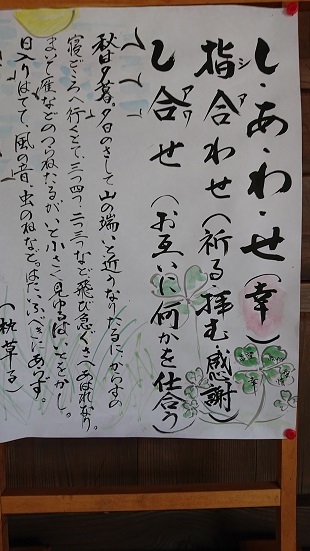 し・あ・わ・せ(幸)
指合わせ(祈る・拝む・感謝)
シア
し合せ(お互いに何かを仕合う)
アワ
秋は夕暮。夕日のさして山の端、いと近うなりたるに、からすの
寝どころへ行くとて、三つ四つ、二つ三つなど飛び急ぐさへあはれなり。
まいて雁などのつらねたるが、いと小さく見ゆるはいとをかし。
日入りはてて、風の音、虫のねなど、はたいふべきにあらず。
(枕草子)